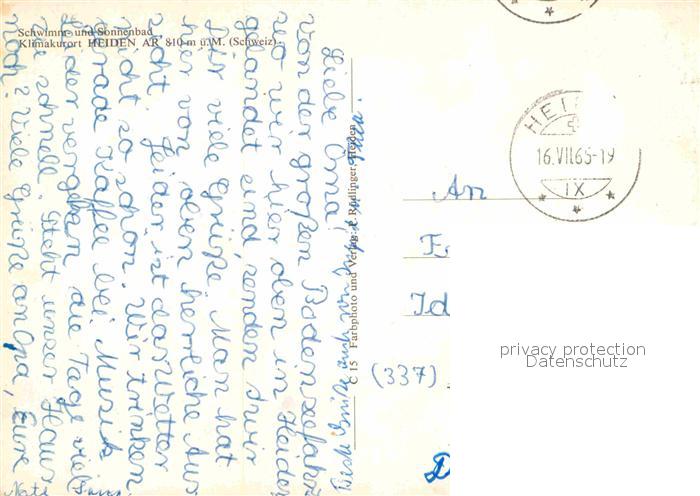 Schwimm- und Sonnenbad
Klimakurort HEIDEN AR 810 m ü. M. (Schweiz)
Liebe Oma!
Von der großen Bodenseefahrt
wo wir hier oben in Heiden
gelandet sind, senden wir
Dir viele Grüße. Man hat
hier von oben herrliche Aus
sicht. Leider ist das Wetter
nicht so schön. Wir trinken
gerade Kaffee bei Musik
Leider vergehen die Tage viel
zu schnell. Steht unser Haus
noch? Viele Grüße an Opa, Eure
Beste Grüße auch von
C 15 Farbphoto und Verlag: E. Rüdlinger, Heiden
HEI
16.VII.65-19
IX
An
Id
(337)
D
privacy protection
Datenschutz